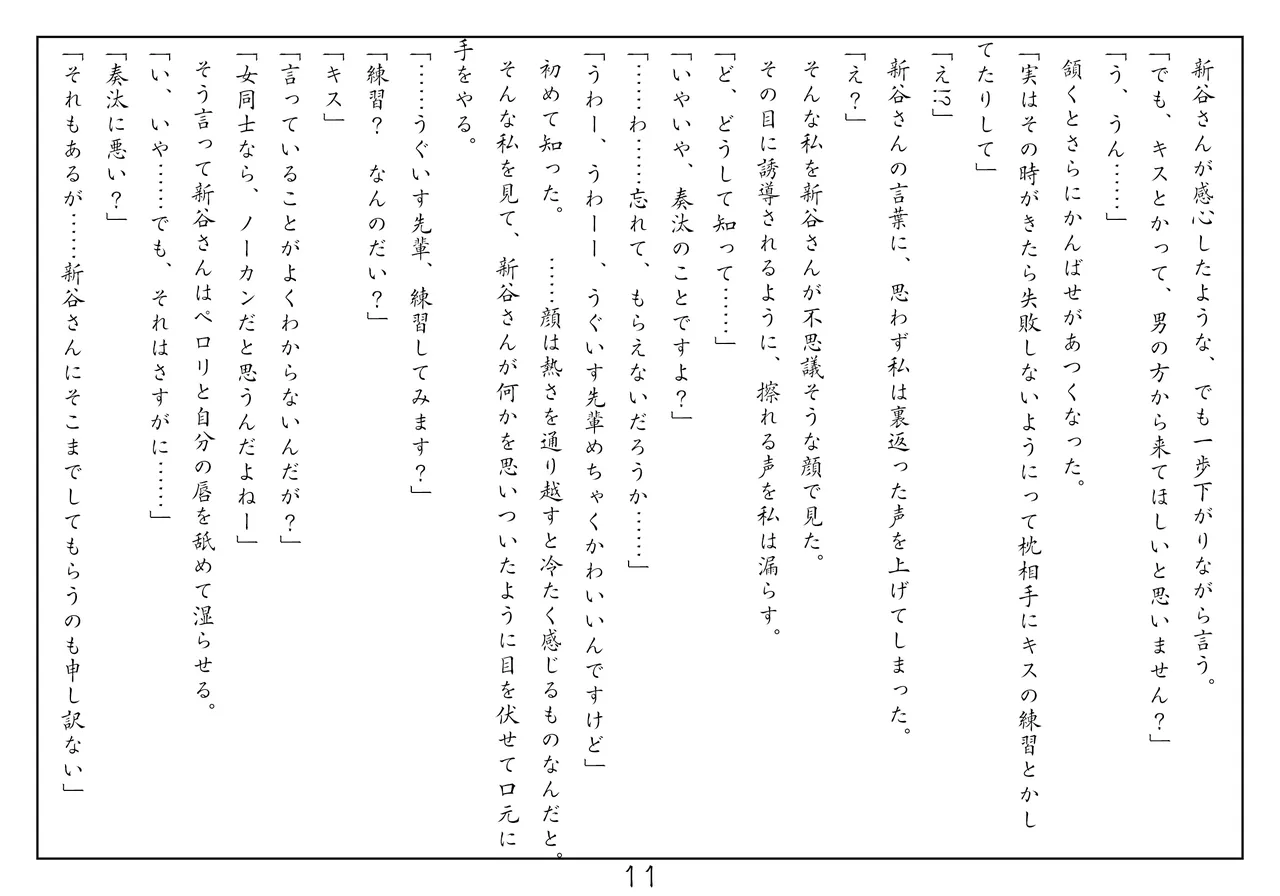 新谷さんが感心したような、でも一歩下がりながら言う。
「でも、キスとかって、男の方から来てほしいと思いません？」
「う、うん……」
頷くとさらにかんばせがあつくなった。
「実はその時がきたら失敗しないようにって枕相手にキスの練習とかし
てたりして」
「え!?」
新谷さんの言葉に、思わず私は裏返った声を上げてしまった。
「え？」
そんな私を新谷さんが不思議そうな顔で見た。
その目に誘導されるように、擦れる声を私は漏らす。
「ど、どうして知って……」
「いやいや、奏汰のことですよ？」
「……わ……忘れて、もらえないだろうか……」
「うわー、うわーー、うぐいす先輩めちゃくかわいいんですけど」
初めて知った。　……顔は熱さを通り越すと冷たく感じるものなんだと。
そんな私を見て、新谷さんが何かを思いついたように目を伏せて口元に
手をやる。
「……うぐいす先輩、練習してみます？」
「練習？　なんのだい？」
「キス」
「言っていることがよくわからないんだが？」
「女同士なら、ノーカンだと思うんだよねー」
そう言って新谷さんはペロリと自分の唇を舐めて湿らせる。
「い、いや……でも、それはさすがに……」
「奏汰に悪い？」
「それもあるが……新谷さんにそこまでしてもらうのも申し訳ない」
11